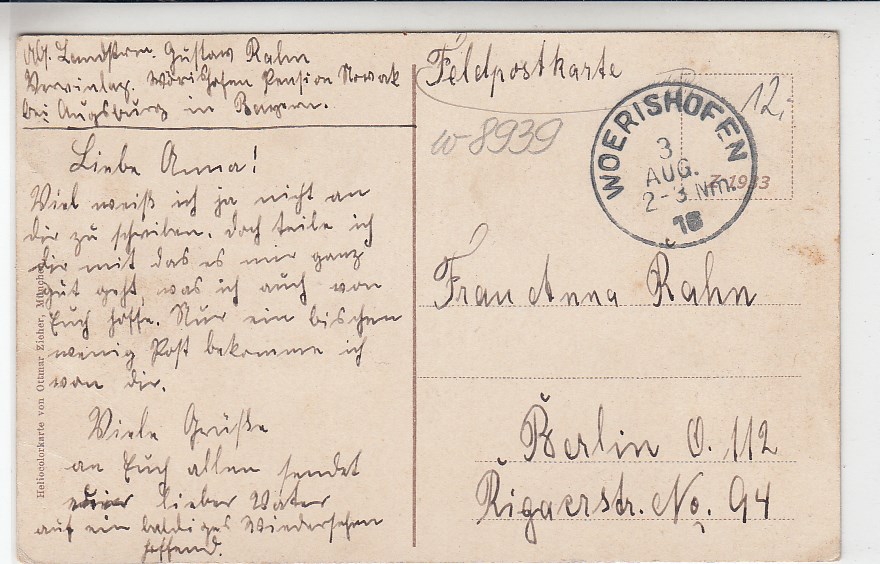 Abs. Landstrm. Gustav Rahn
Vereinlaz. Wörishofen Pension Nowak
bei Augsburg in Bayern.
Liebe Anna!
Viel weiß ich ja nicht an
dir zu schreiben. Doch teile ich
dir mit das es mir ganz
gut geht, was ich auch von
Euch hoffe. Nur ein bischen
wenig Post bekomme ich
von dir.
Viele Grüße
an Euch allen sendet
lieber Vater
auf ein baldiges Wiedersehen
hoffend.
Heliocolorkarte von Ottmar Zieher, München
Feldpostkarte
w-8939
12,-
WOERISHOFEN
3
AUG.
2-3 Nm.
Frau Anna Rahn
Berlin O. 112
Rigaerstr. No. 94